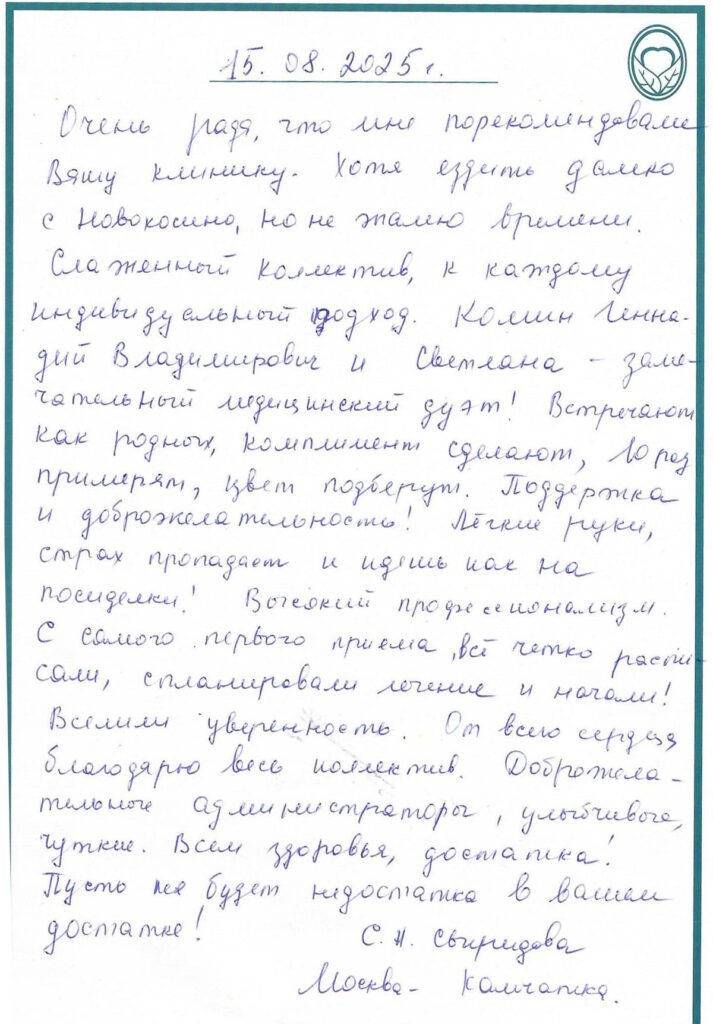 15.08.2025г.
Очень рада, что мне порекомендовали
Вашу клинику. Хотя ездить далеко
с Новокосино, но не жалею времени.
Слаженный коллектив, к каждому
индивидуальный подход. Комин Генна-
дий Владимирович и Светлана – заме-
чательный медицинский дуэт! Встречают
как родных, комплимент сделают, 10 раз
примерят, цвет подберут. Поддержка
и доброжелательность! Лёгкие руки,
страх пропадает и идешь как на
посиделки! Высокий профессионализм.
С самого первого приема, всё четко распи-
сали, спланировали лечение и начали!
Вселили уверенность. От всего сердца
благодарю весь коллектив. Доброжела-
тельные администраторы, улыбчивые,
чуткие. Всем здоровья, достатка!
Пусть не будет недостатка в вашем
достатке!
С.Н. Свиридова
Москва - Камчатка.